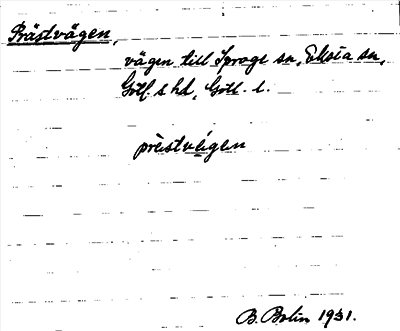 Prästvägen,
vägen till Sproge sn, Eksta sn,
Gotl. s hd, Gotl. l.
prèstvéigen
B. Bolin 1931.